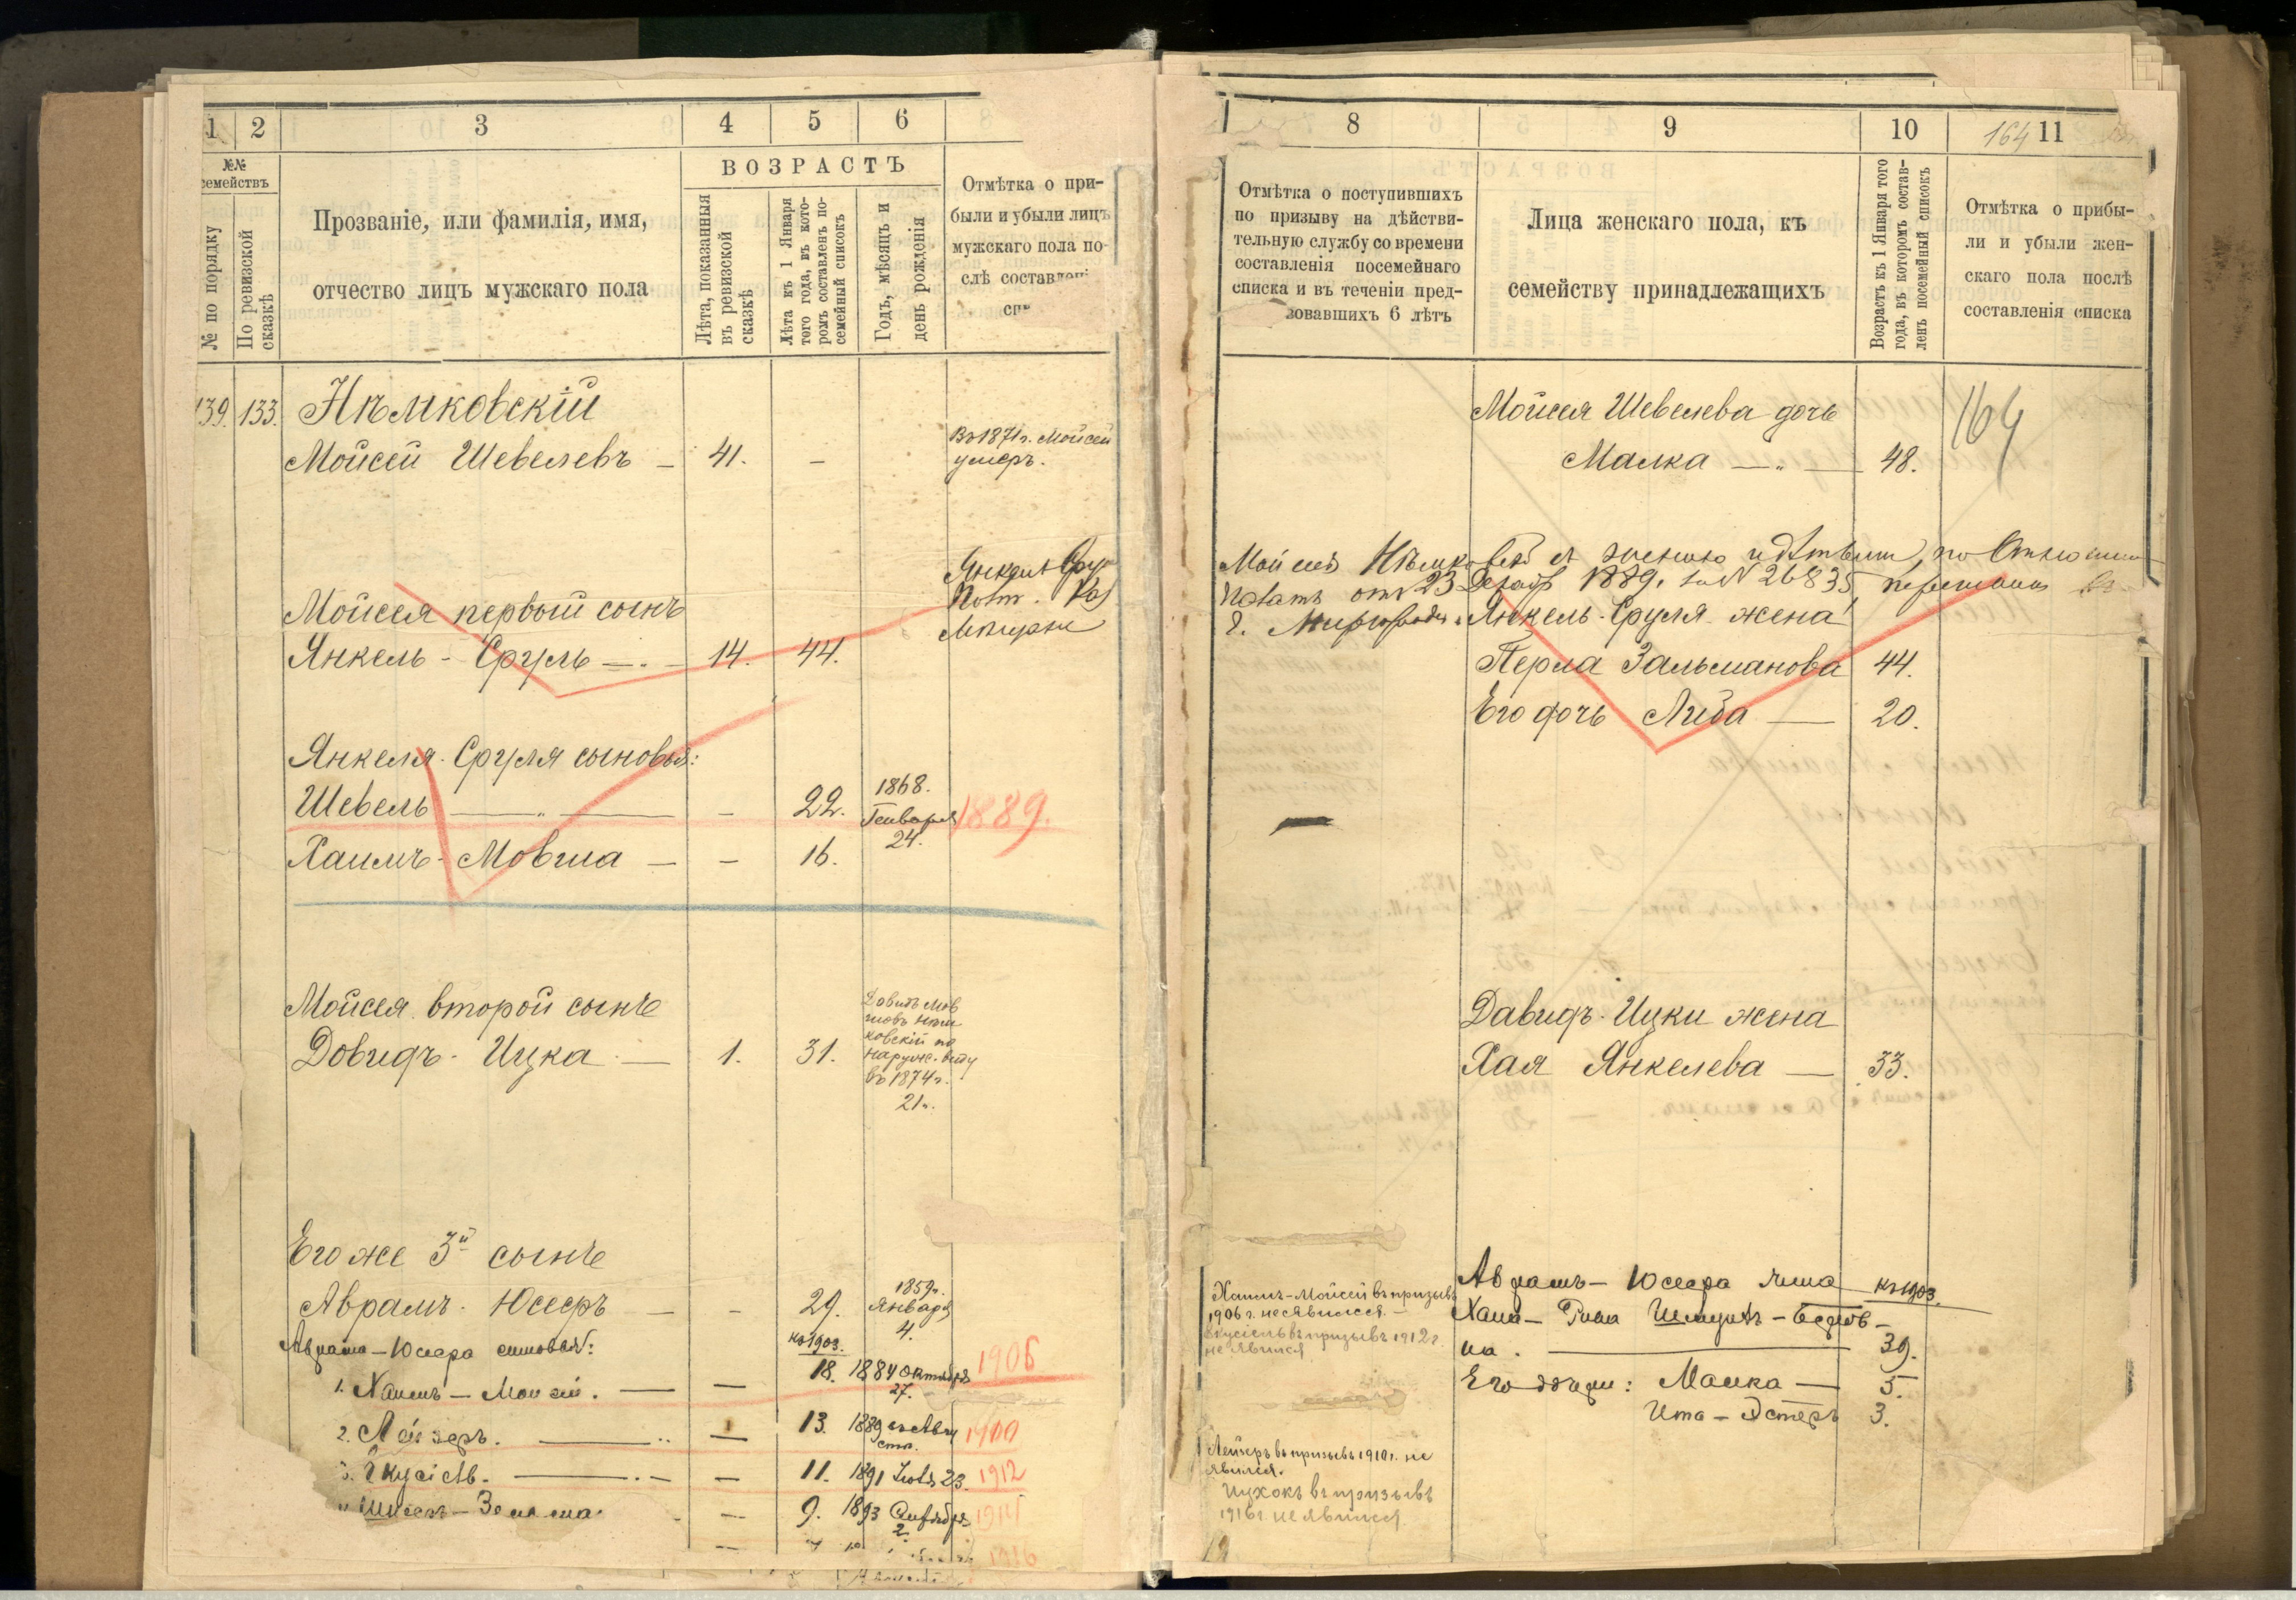 1 2 3 4 5 6
№№ семействъ
№ по порядку
По ревизской сказкѣ
Прозваніе, или фамилія, имя,
отчество лицъ мужскаго пола
ВОЗРАСТЪ
Лѣта, показанныя въ ревизской сказкѣ
Лѣта къ 1 Января того года, въ которомъ составленъ посемейный списокъ
Годъ, мѣсяцъ и день рожденія
Отмѣтка о при-
были и убыли лицъ
мужскаго пола по-
слѣ
139. 133. Нѣмковскій
Мойсей Шевелевъ — 41. —
Въ 1871 г. Мойсей
умеръ.
Мойсея первый сынъ
Янкель-Сруль — 14. 44.
Янкеля-Сруля сыновья:
Шевель — — 22. 1868. Генваря 24. 1889.
Хаимъ-Мовша — — 16.
Мойсея второй сынъ
Довидъ-Ицка — 1. 31.
Довидъ Мов
шовъ Нѣм
ковскій по
наруж. виду
въ 1874 г.
21 г.
Его же 3й сынъ
Аврамъ-Юсеръ — — 29. 1859 г. Января 4.
Аврама-Юсера сыновья: къ 1903.
1. Хаимъ-Мойсей. — — 18. 1884 Октября 27. 1906
2. Лейзеръ. — — 13. 1889 Авгу 1910
3. — — 11. 1891 23. 1912
— 9. 1893 2.
1916
8 9 10 164 11
Отмѣтка о поступившихъ
по призыву на дѣйстви-
тельную службу со времени
составленія посемейнаго
списка и въ теченіи пред-
зовавшихъ 6 лѣтъ
Лица женскаго пола, къ
семейству принадлежащихъ
Возрастъ къ 1 Января того года, въ которомъ составленъ посемейный списокъ
Отмѣтка о прибы-
ли и убыли жен-
скаго пола послѣ
составленія списка
Мойсея Шевелева дочь 164
Малка — 48.
отъ 23 1889. за № 26835,
Янкель-Сруля жена
Перла Зальманова 44.
Его дочь Либа — 20.
Давидъ-Ицки жена
Хая Янкелева — 33.
Аврамъ-Юсера жена къ 1903.
Хана-
на. — 39.
Его дочери: Малка — 5.
Ита-Эстеръ 3.
Хаимъ-Мойсей въ призывъ
1906 г. не явился. —
въ призывъ 1912 г.
не явился
Лейзеръ въ призывъ 1910 г. не
явился.
Ицхокъ въ призывъ
1916 г. не явился